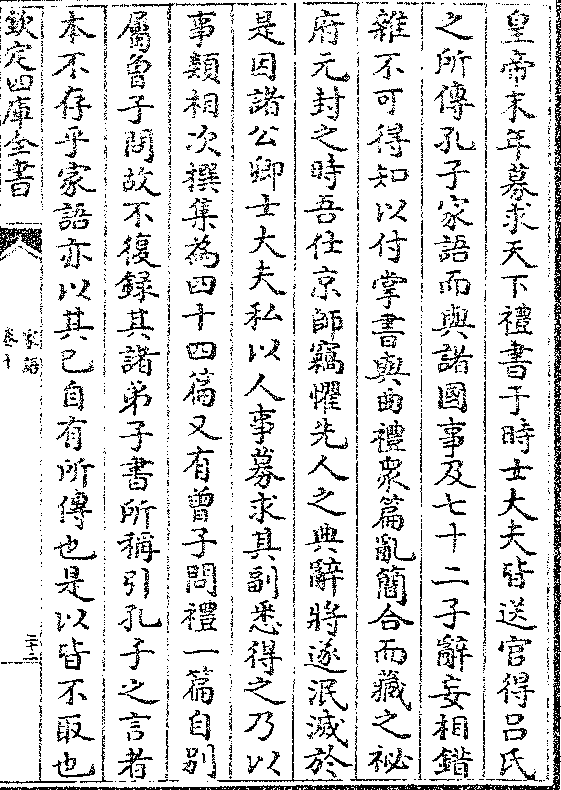 皇帝末年募求天下禮書于時士大夫皆送官得呂氏
之所傳孔子家語而與諸國事及七十二子辭妄相錯
雜不可得知以付掌書與曲禮衆篇亂簡合而藏之祕
府元封之時吾仕京師竊懼先人之典辭將遂泯滅於
是因諸公卿士大夫私以人事募求其副悉得之乃以
事類相次撰集為四十四篇又有曾子問禮一篇自别
屬曾子問故不復録其諸弟子書所稱引孔子之言者
本不存乎家語亦以其已自有所傳也是以皆不取也
欽定四庫全書
家語
卷十
三十二